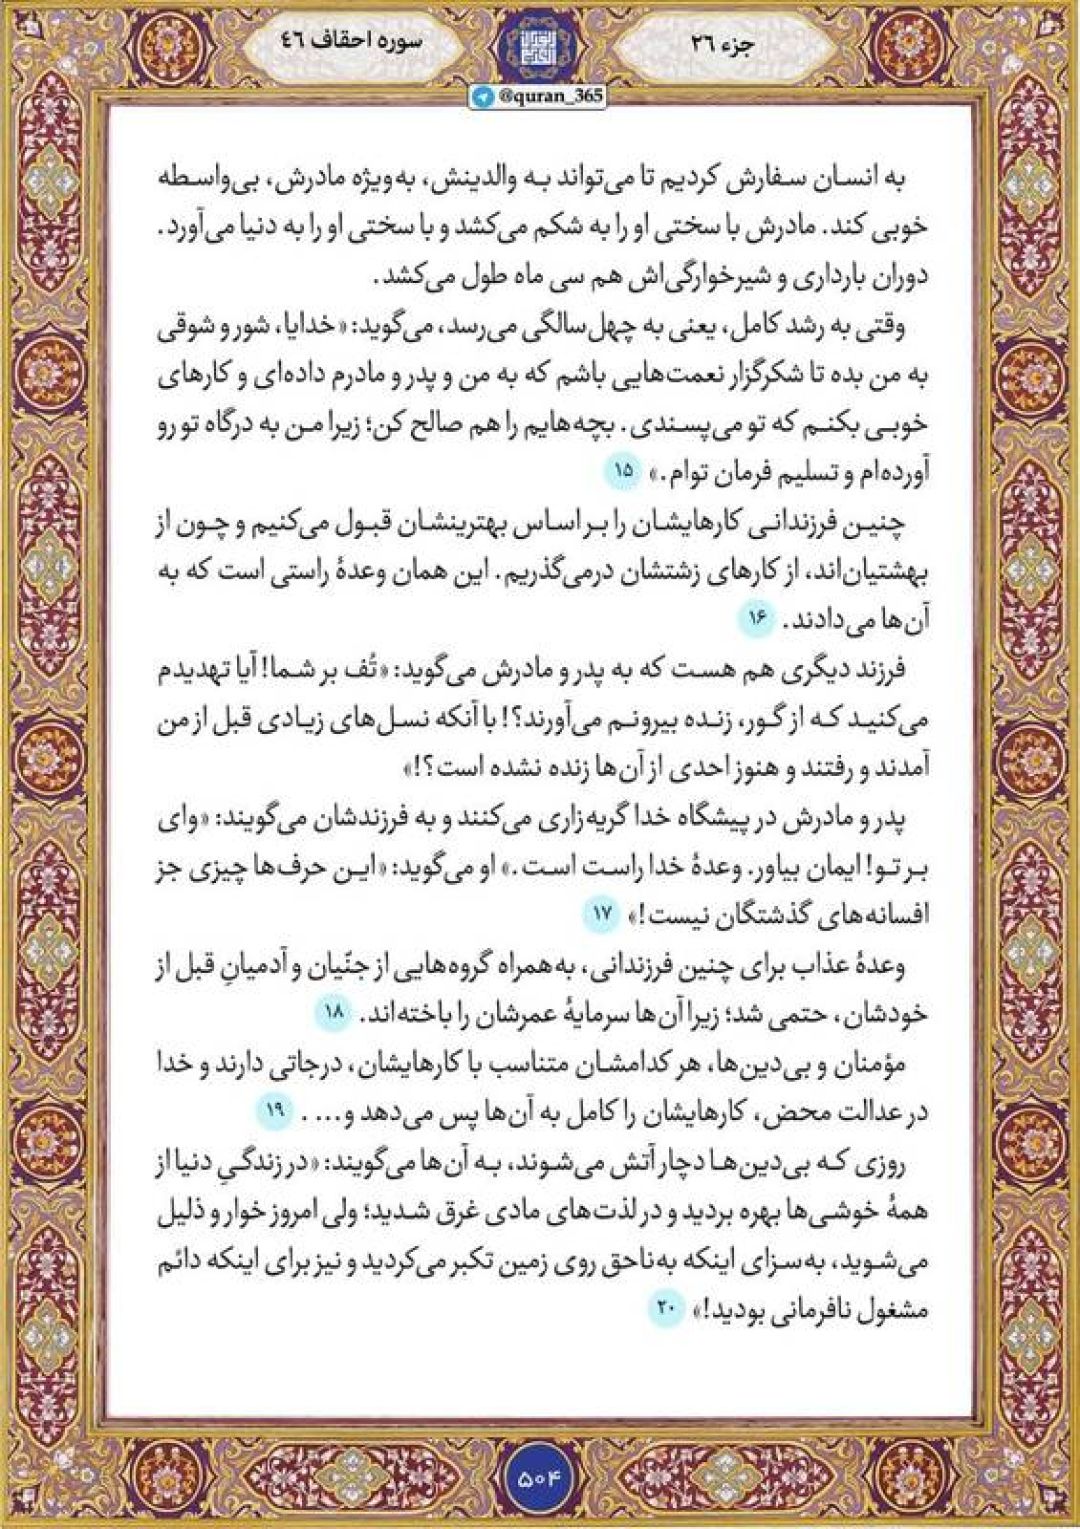 جزء ٢٦
سوره احقاف ٤٦
@quran_365
به انسان سفارش کردیم تا می‌تواند به والدینش، به‌ویژه مادرش، بی‌واسطه
خوبی کند. مادرش با سختی او را به شکم می‌کشد و با سختی او را به دنیا می‌آورد.
دوران بارداری و شیرخوارگی‌اش هم سی ماه طول می‌کشد.
وقتی به رشد کامل، یعنی به چهل‌سالگی می‌رسد، می‌گوید: «خدایا، شور و شوقی
به من بده تا شکرگزار نعمت‌هایی باشم که به من و پدر و مادرم داده‌ای و کارهای
خوبی بکنم که تو می‌پسندی. بچه‌هایم را هم صالح کن؛ زیرا من به درگاه تو رو
آورده‌ام و تسلیم فرمان توام.» ۱۵
چنین فرزندانی کارهایشان را بر اساس بهترینشان قبول می‌کنیم و چون از
بهشتیان‌اند، از کارهای زشتشان درمی‌گذریم. این همان وعدهٔ راستی است که به
آن‌ها می‌دادند. ۱۶
فرزند دیگری هم هست که به پدر و مادرش می‌گوید: «تُف بر شما! آیا تهدیدم
می‌کنید که از گور، زنده بیرونم می‌آورند؟! با آنکه نسل‌های زیادی قبل از من
آمدند و رفتند و هنوز احدی از آن‌ها زنده نشده است؟!»
پدر و مادرش در پیشگاه خدا گریه‌زاری می‌کنند و به فرزندشان می‌گویند: «وای
بر تو! ایمان بیاور. وعدهٔ خدا راست است.» او می‌گوید: «این حرف‌ها چیزی جز
افسانه‌های گذشتگان نیست!» ۱۷
وعدهٔ عذاب برای چنین فرزندانی، به‌همراه گروه‌هایی از جنّیان و آدمیانِ قبل از
خودشان، حتمی شد؛ زیرا آن‌ها سرمایهٔ عمرشان را باخته‌اند. ۱۸
مؤمنان و بی‌دین‌ها، هر کدامشان متناسب با کارهایشان، درجاتی دارند و خدا
در عدالت محض، کارهایشان را کامل به آن‌ها پس می‌دهد و... . ۱۹
روزی که بی‌دین‌ها دچار آتش می‌شوند، به آن‌ها می‌گویند: «در زندگیِ دنیا از
همهٔ خوشی‌ها بهره بردید و در لذت‌های مادی غرق شدید؛ ولی امروز خوار و ذلیل
می‌شوید، به‌سزای اینکه به‌ناحق روی زمین تکبر می‌کردید و نیز برای اینکه دائم
مشغول نافرمانی بودید!» ۲۰
۵۰۴